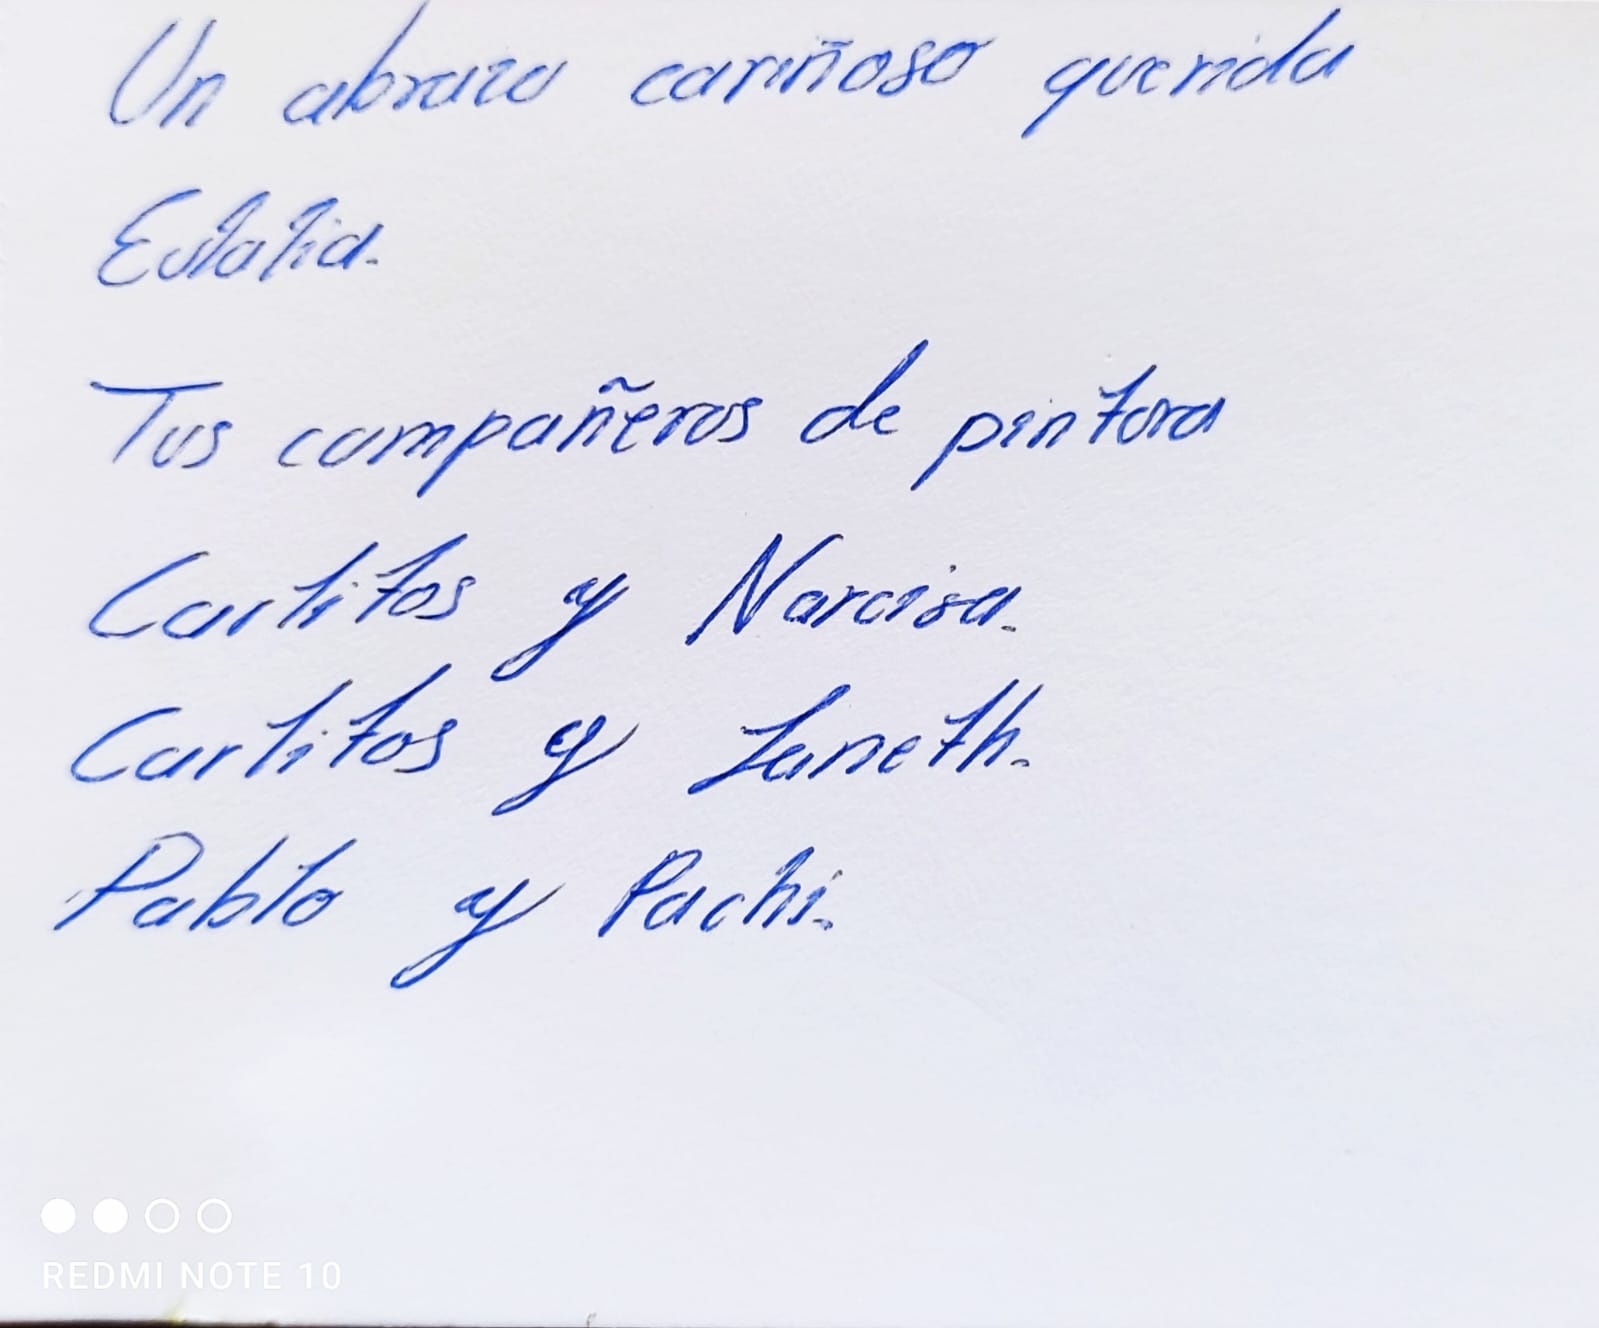 Un abrazo cariñoso querida
Eulalia.
Tus compañeros de pintura
Carlitos y Narcisa.
Carlitos y Janeth.
Pablo y Pachi.
REDMI NOTE 10